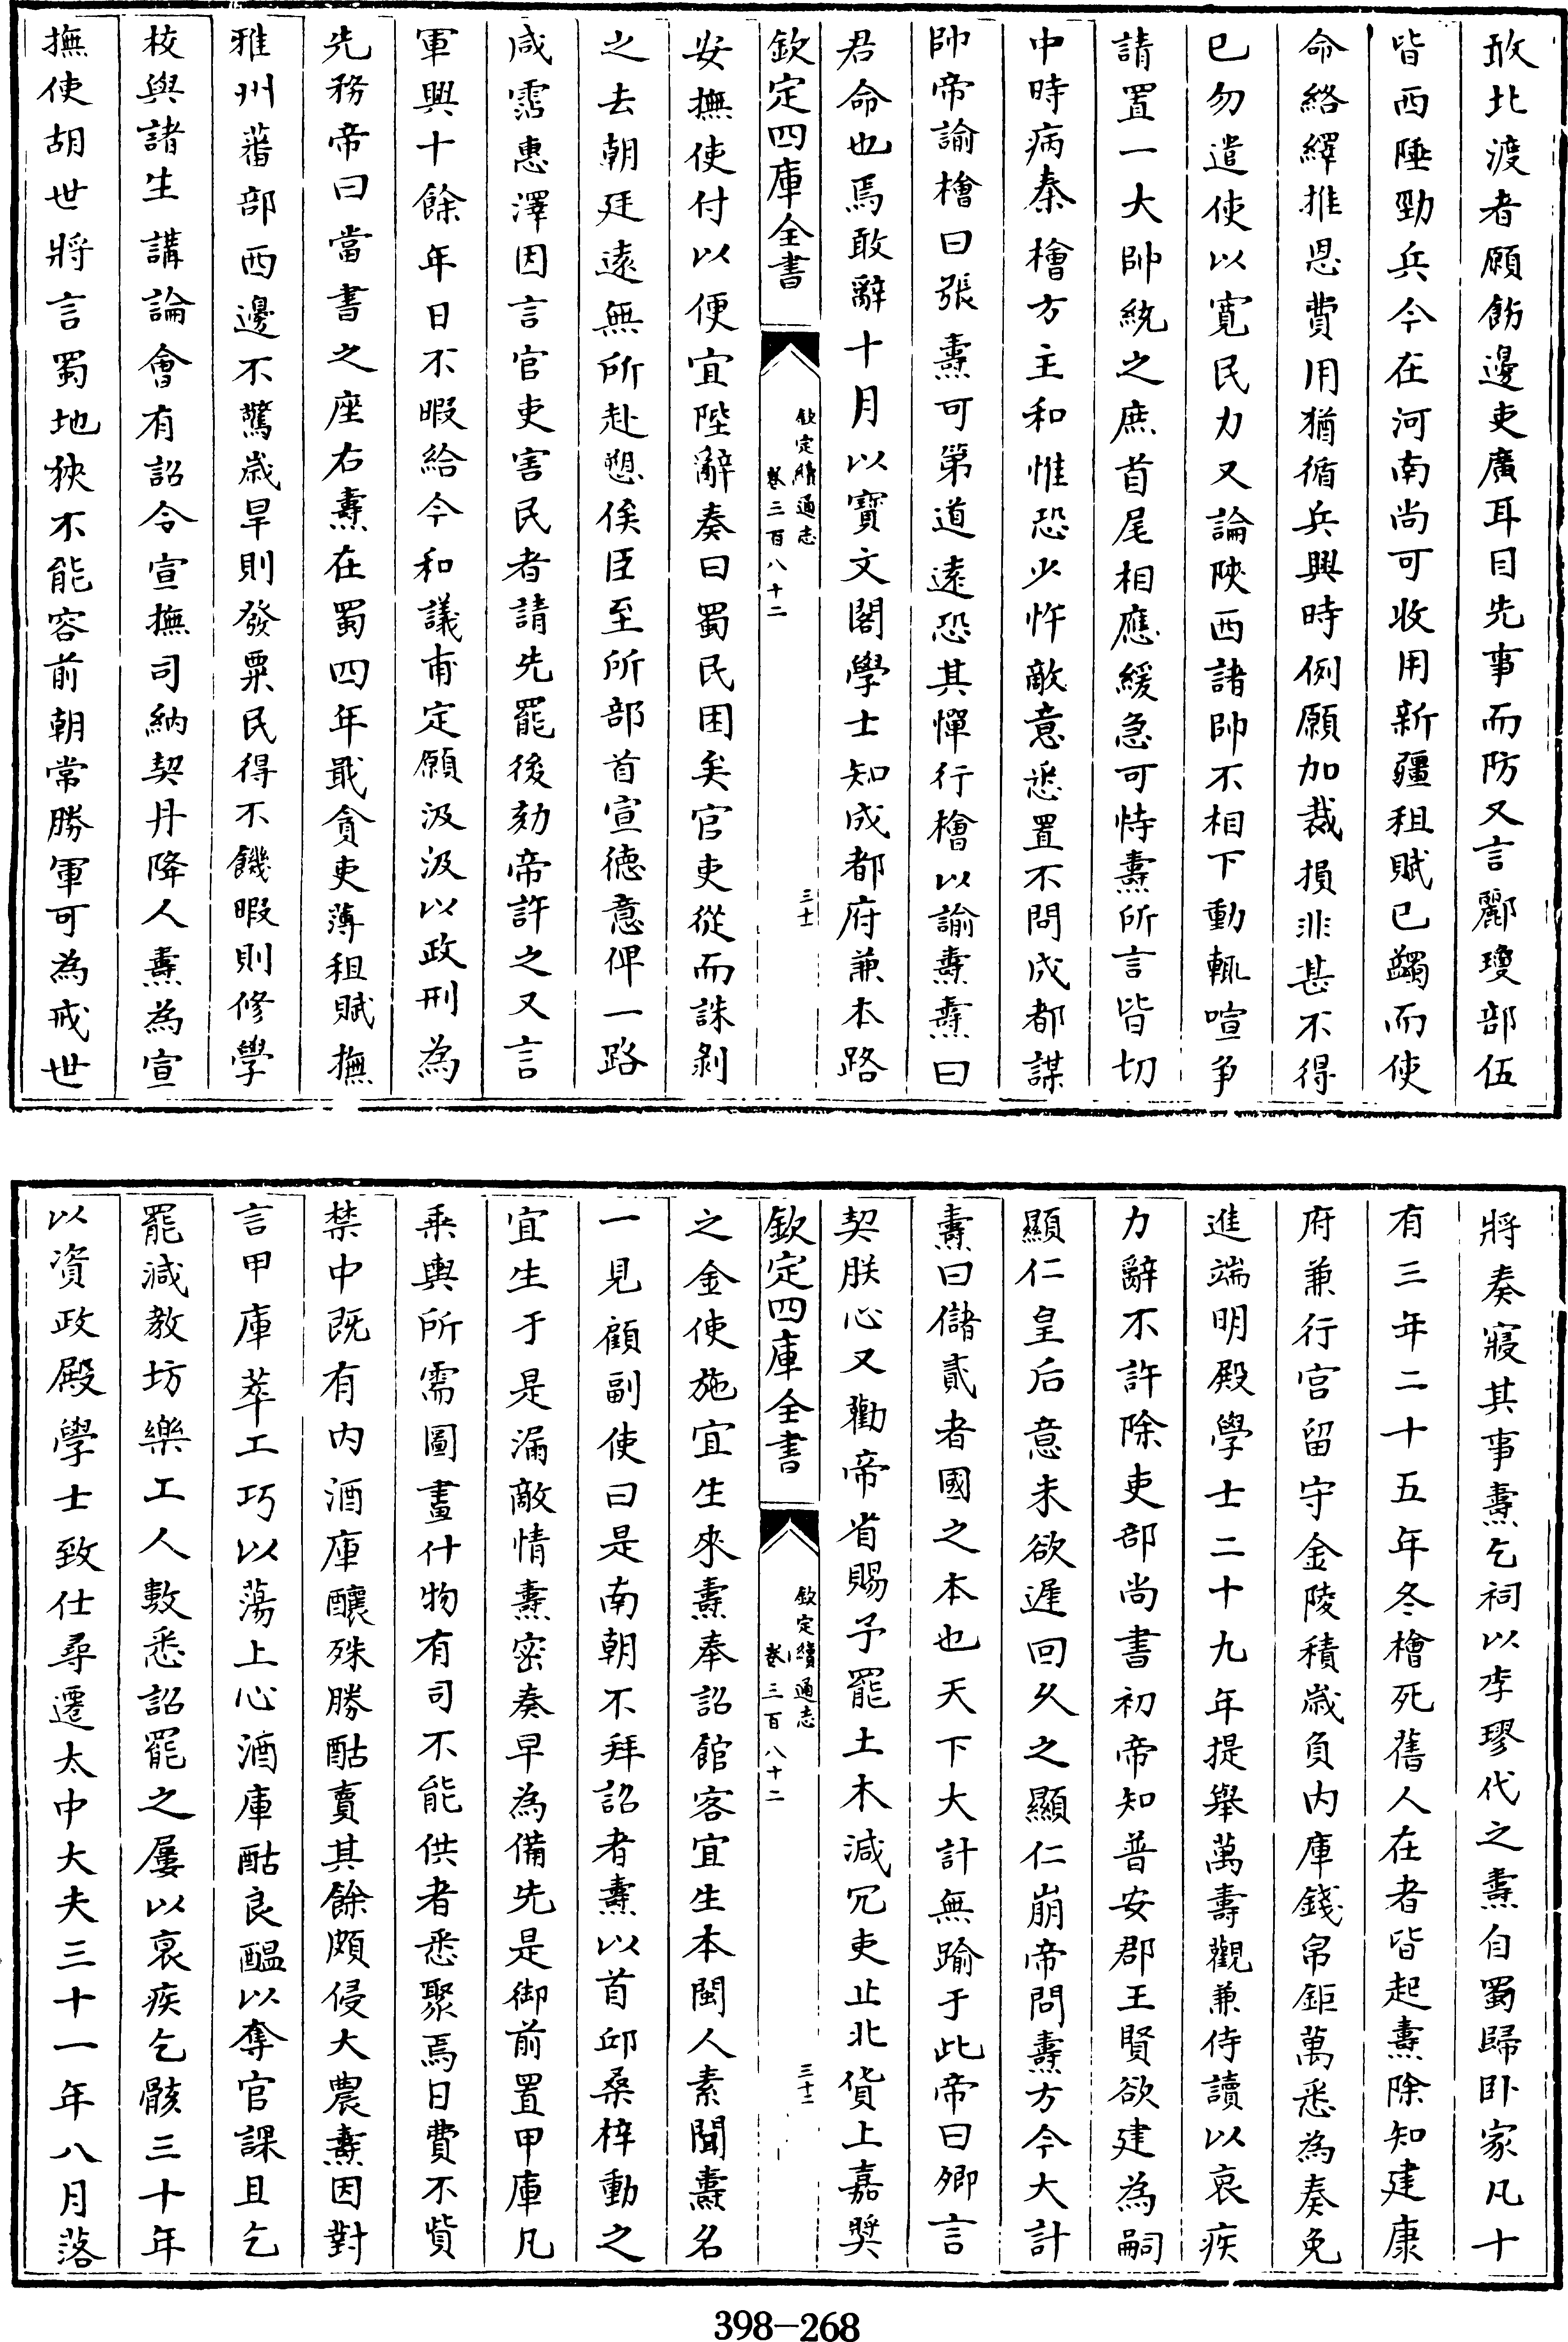 敢北渡者願飭邊吏廣耳目先事而防又言酈瓊部伍
皆西陲勁兵今在河南尚可收用新疆租賦已蠲而使
命絡繹推恩費用猶循兵興時例願加裁損非甚不得
已勿遣使以寛民力又論陜西諸帥不相下動輒喧爭
請置一大帥統之庶首尾相應緩急可恃燾所言皆切
中時病秦檜方主和惟恐少忤敵意悉置不問成都謀
帥帝諭檜曰張燾可第道遠恐其憚行檜以諭燾燾曰
君命也焉敢辭十月以寳文閣學士知成都府兼本路
欽定四庫全書
欽定續通志
卷三百八十二
三十
安撫使付以便宜陛辭奏曰蜀民困矣官吏從而誅剝
之去朝廷遠無所赴愬俟臣至所部首宣徳意俾一路
咸霑惠澤因言官吏害民者請先罷後劾帝許之又言
軍興十餘年日不暇給今和議甫定願汲汲以政刑為
先務帝曰當書之座右燾在蜀四年戢貪吏薄租賦撫
雅州蕃部西邊不驚歲旱則發粟民得不饑暇則修學
校與諸生講論會有詔令宣撫司納契丹降人燾為宣
撫使胡世將言蜀地狹不能容前朝常勝軍可為戒世
將奏寢其事燾乞祠以李璆代之燾自蜀歸卧家凡十
有三年二十五年冬檜死舊人在者皆起燾除知建康
府兼行宮留守金陵積歲負内庫錢帛鉅萬悉為奏免
進端明殿學士二十九年提舉萬壽觀兼侍讀以衰疾
力辭不許除吏部尚書初帝知普安郡王賢欲建為嗣
顯仁皇后意未欲遲回久之顯仁崩帝問燾方今大計
燾曰儲貳者國之本也天下大計無踰于此帝曰卿言
契朕心又勸帝省賜予罷土木減冗吏止北貨上嘉奬
欽定四庫全書
欽定續通志
卷三百八十二
三十一
之金使施宜生來燾奉詔館客宜生本閩人素聞燾名
一見顧副使曰是南朝不拜詔者燾以首邱桑梓動之
宜生于是漏敵情燾密奏早為備先是御前置甲庫凡
乘輿所需圖畫什物有司不能供者悉聚焉日費不貲
禁中既有内酒庫釀殊勝酤賣其餘頗侵大農燾因對
言甲庫萃工巧以蕩上心酒庫酤良醖以奪官課且乞
罷減教坊樂工人數悉詔罷之屢以衰疾乞骸三十年
以資政殿學士致仕尋遷太中大夫三十一年八月落
398-268